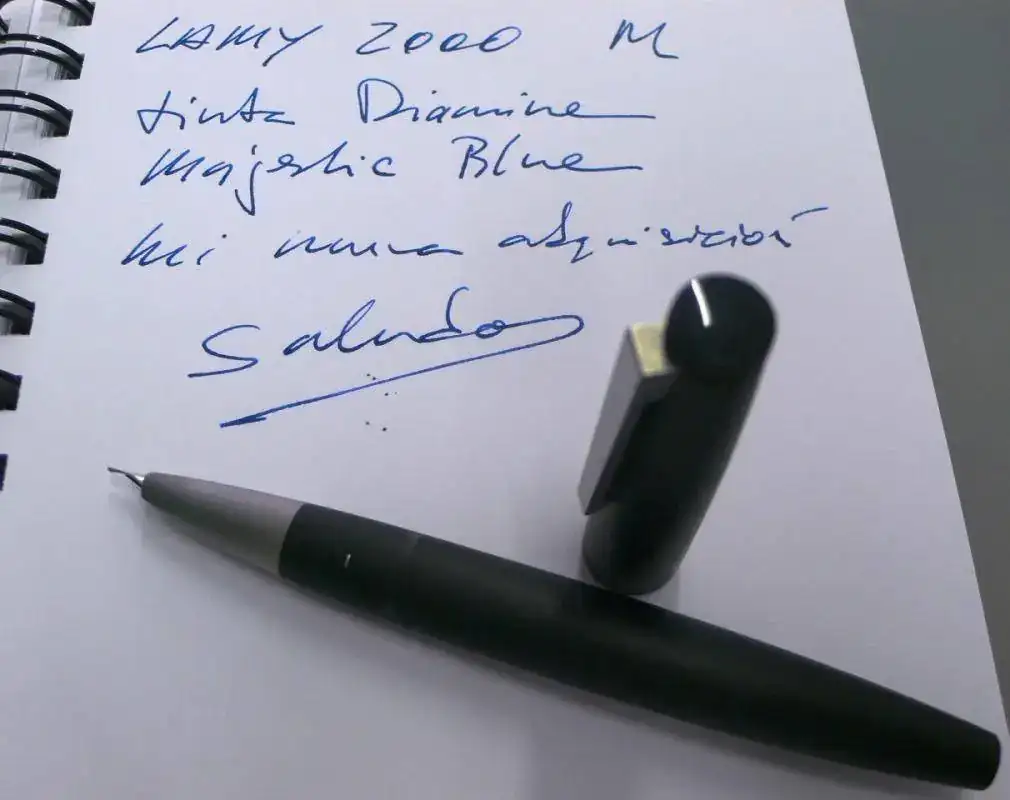 LAMY 2000 M
tinta Diamine
Majestic Blue
mi nueva adquisición
Saludos